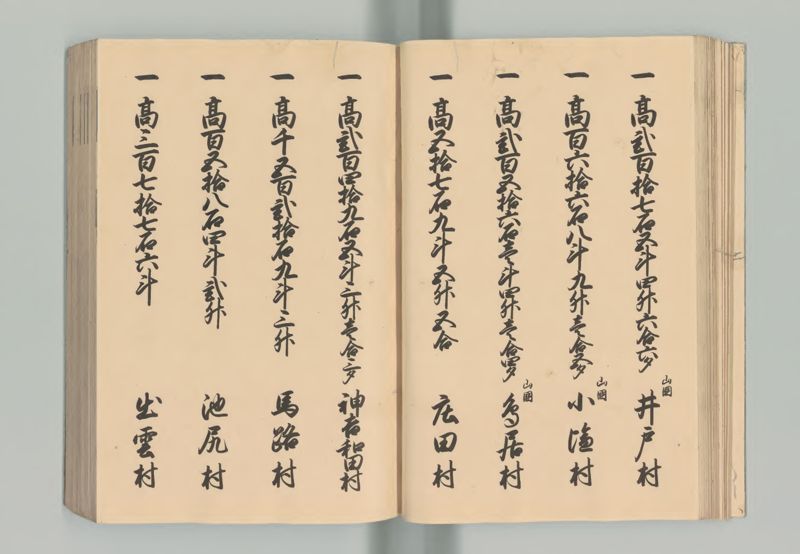 一 高弐百拾七石五斗四升六合六夕 山國 井戸村
一 高百六拾六石八斗九升壱合五夕 山國 小塩村
一 高弐百五拾六石壱斗四升壱合四夕 山國 鳥居村
一 高五拾七石九斗五升五合 庄田村
一 高弐百四拾九石五斗三升壱合三夕 神吉和田村
一 高千五百弐拾石九斗三升 馬路村
一 高百五拾八石四斗弐升 池尻村
一 高三百七拾七石六斗 出雲村